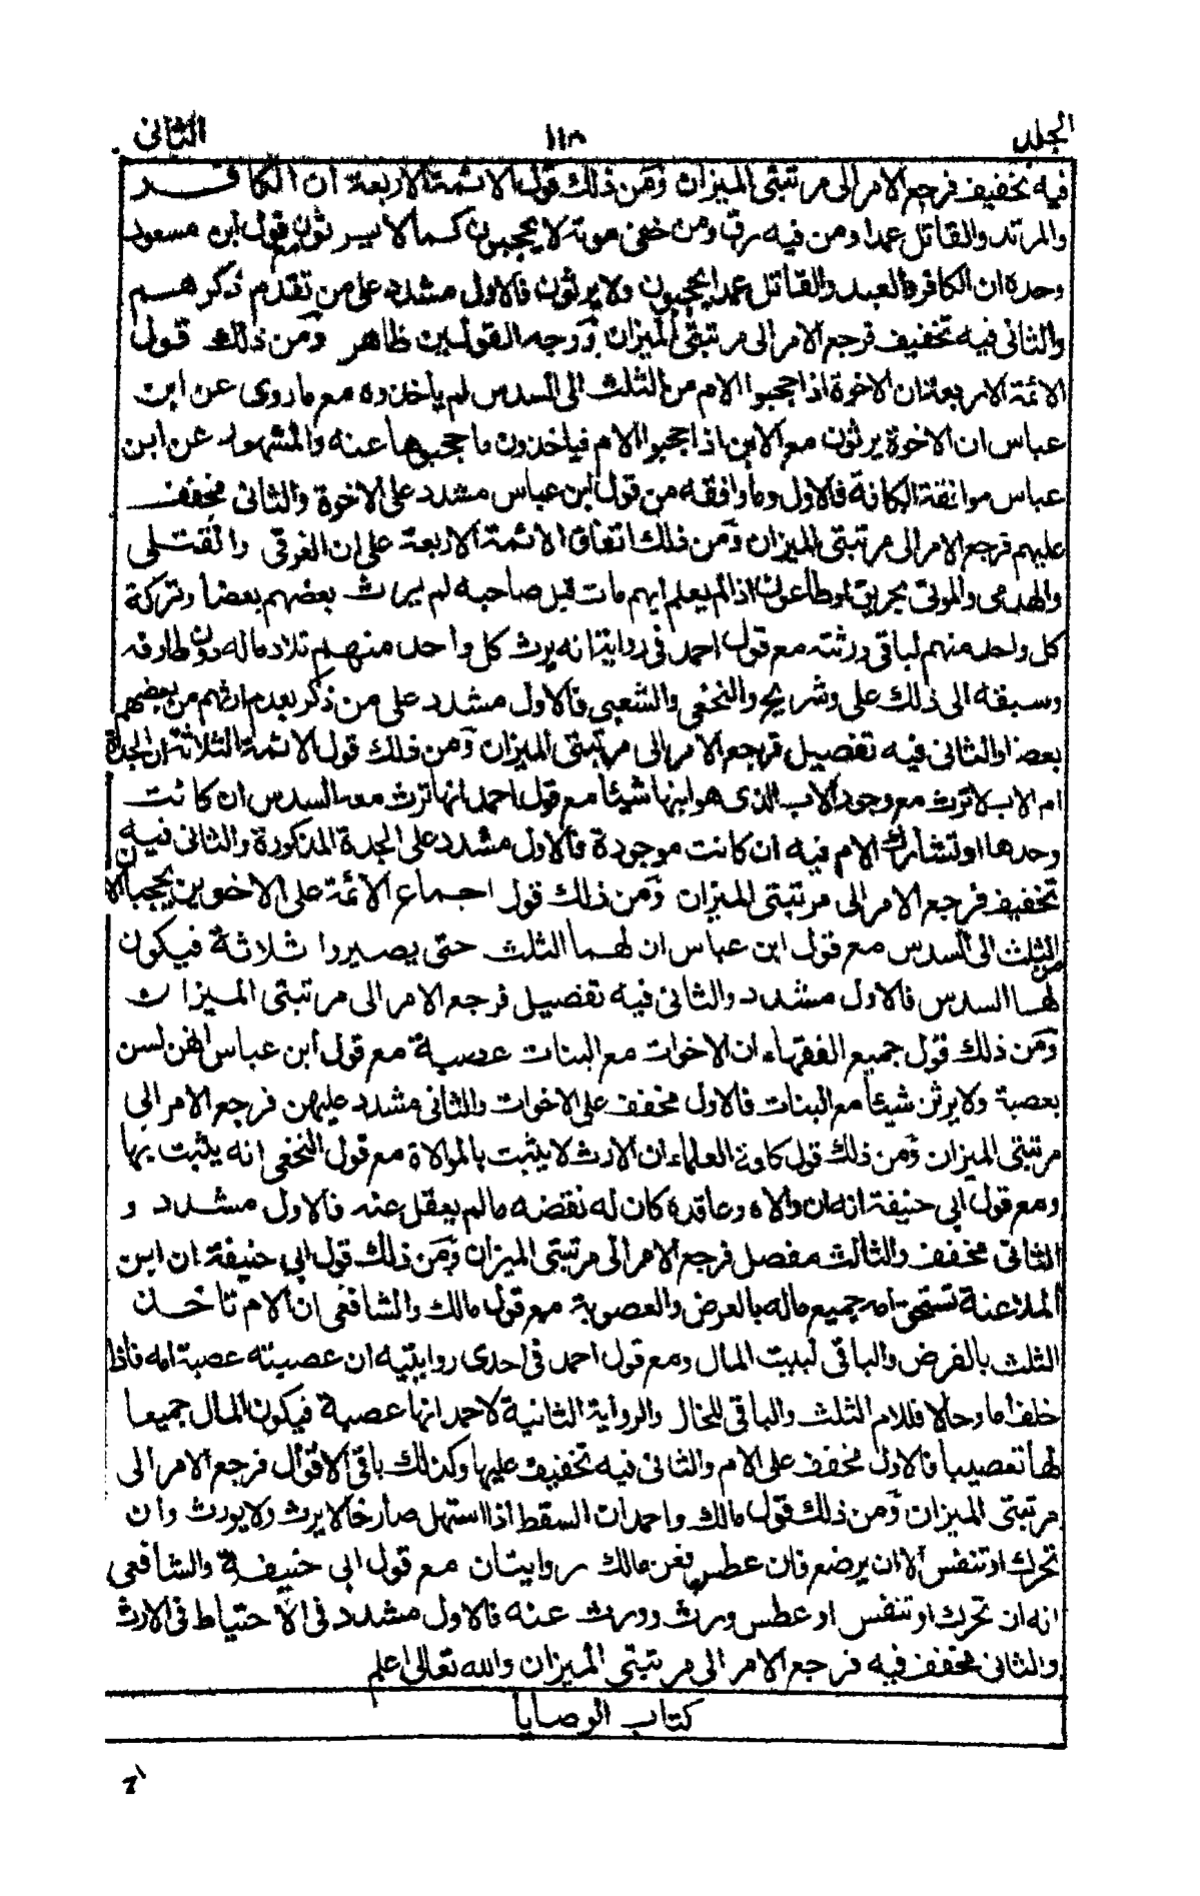 الجلد ١١٨ الثاني
فيه تخفيف فرجع الامر الى مرتبتي الميزان ومن ذلك قول الائمة الاربعة ان الكافر
والمرتد والقاتل عمدا ومن فيه رق ومن خفى موته لا يحجبون كما لا يرثون مع قول ابن مسعود
وحده ان الكافر والعبد والقاتل عمدا يحجبون ولا يرثون فالاول مشدد على من تقدم ذكرهم
والثاني فيه تخفيف فرجع الامر الى مرتبتي الميزان ووجه القولين ظاهر ومن ذلك قول
الائمة الاربعة ان الاخوة اذا حجبوا الام من الثلث الى السدس لم يأخذوه مع ماروى عن ابن
عباس ان الاخوة يرثون مع الابن اذا حجبوا الام فياخذون ما حجبوها عنه والمشهور عن ابن
عباس موافقة الكافة فالاول وما وافقه من قول ابن عباس مشدد على الاخوة والثاني مخفف
عليهم فرجع الامر الى مرتبتي الميزان ومن ذلك اتفاق الائمة الاربعة على ان الغرقى والقتلى
والهدمى والموتى بحريق او طاعون اذا لم يعلم ايهم مات قبل صاحبه لم يرث بعضهم بعضا وتركة
كل واحد منهم لباقي ورثته مع قول احمد في رواية انه يرث كل واحد منهم تلاد ماله دون طارفه
وسبقه الى ذلك على وشريح والنخعي والشعبي فالاول مشدد على من ذكر بعدم ارثهم من بعضهم
بعضا والثاني فيه تفصيل فرجع الامر الى مرتبتي الميزان ومن ذلك قول الائمة الثلاثة ان الجدة
ام الاب لا ترث مع وجود الاب الذي هو ابنها شيئا مع قول احمد انها ترث معه السدس ان كانت
وحدها او تشارك الام فيه ان كانت موجودة فالاول مشدد على الجدة المذكورة والثاني فيه
تخفيف فرجع الامر الى مرتبتي الميزان ومن ذلك قول اجماع الائمة على الاخوين يحجبان الام
من الثلث الى السدس مع قول ابن عباس ان لهما الثلث حتى يصيروا ثلاثة فيكون
لها السدس فالاول مشدد والثاني فيه تفصيل فرجع الامر الى مرتبتي الميزان
ومن ذلك قول جميع الفقهاء ان الاخوات مع البنات عصبة مع قول ابن عباس انهن لسن
بعصبة ولا يرثن شيئا مع البنات فالاول مخفف على الاخوات والثاني مشدد عليهن فرجع الامر الى
مرتبتي الميزان ومن ذلك قول كافة العلماء ان الارث لا يثبت بالموالاة مع قول النخعي انه يثبت بها
ومع قول ابي حنيفة انه ان والاه وعاقده كان له نقضه ما لم يعقل عنه فالاول مشدد و
الثاني مخفف والثالث مفصل فرجع الامر الى مرتبتي الميزان ومن ذلك قول ابي حنيفة ان ابن
الملاعنة تستحق امه جميع ماله بالفرض والعصوبة مع قول مالك والشافعي ان الام تاخذ
الثلث بالفرض والباقي لبيت المال ومع قول احمد في احدى روايتيه ان عصبته عصبة امه فاذا
خلف اما وخالا فللام الثلث والباقي للخال والرواية الثانية لاحمد انها عصبة فيكون المال جميعا
لها تعصيبا فالاول مخفف على الام والثاني فيه تخفيف عليها وكذلك باقي الاقوال فرجع الامر الى
مرتبتي الميزان ومن ذلك قول مالك واحمد ان السقط اذا استهل صارخا لا يرث ولا يورث وان
تحرك او تنفس الا ان يرضع فان عطس فعن مالك روايتان مع قول ابي حنيفة والشافعي
انه ان تحرك او تنفس او عطس ورث وورث عنه فالاول مشدد في الاحتياط في الارث
والثاني مخفف فيه فرجع الامر الى مرتبتي الميزان والله تعالى اعلم
كتاب الوصايا